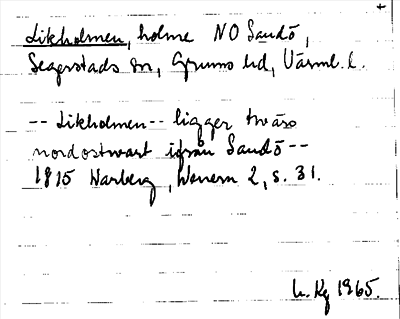 Likholmen, holme NO Sandö,
Segerstads sn, Grums hd, Värml. l.
-- Likholmen -- ligger twärs
nordostwart ifrån Sandö --
1815 Warberg, Wenern 2, s. 31.
1965.